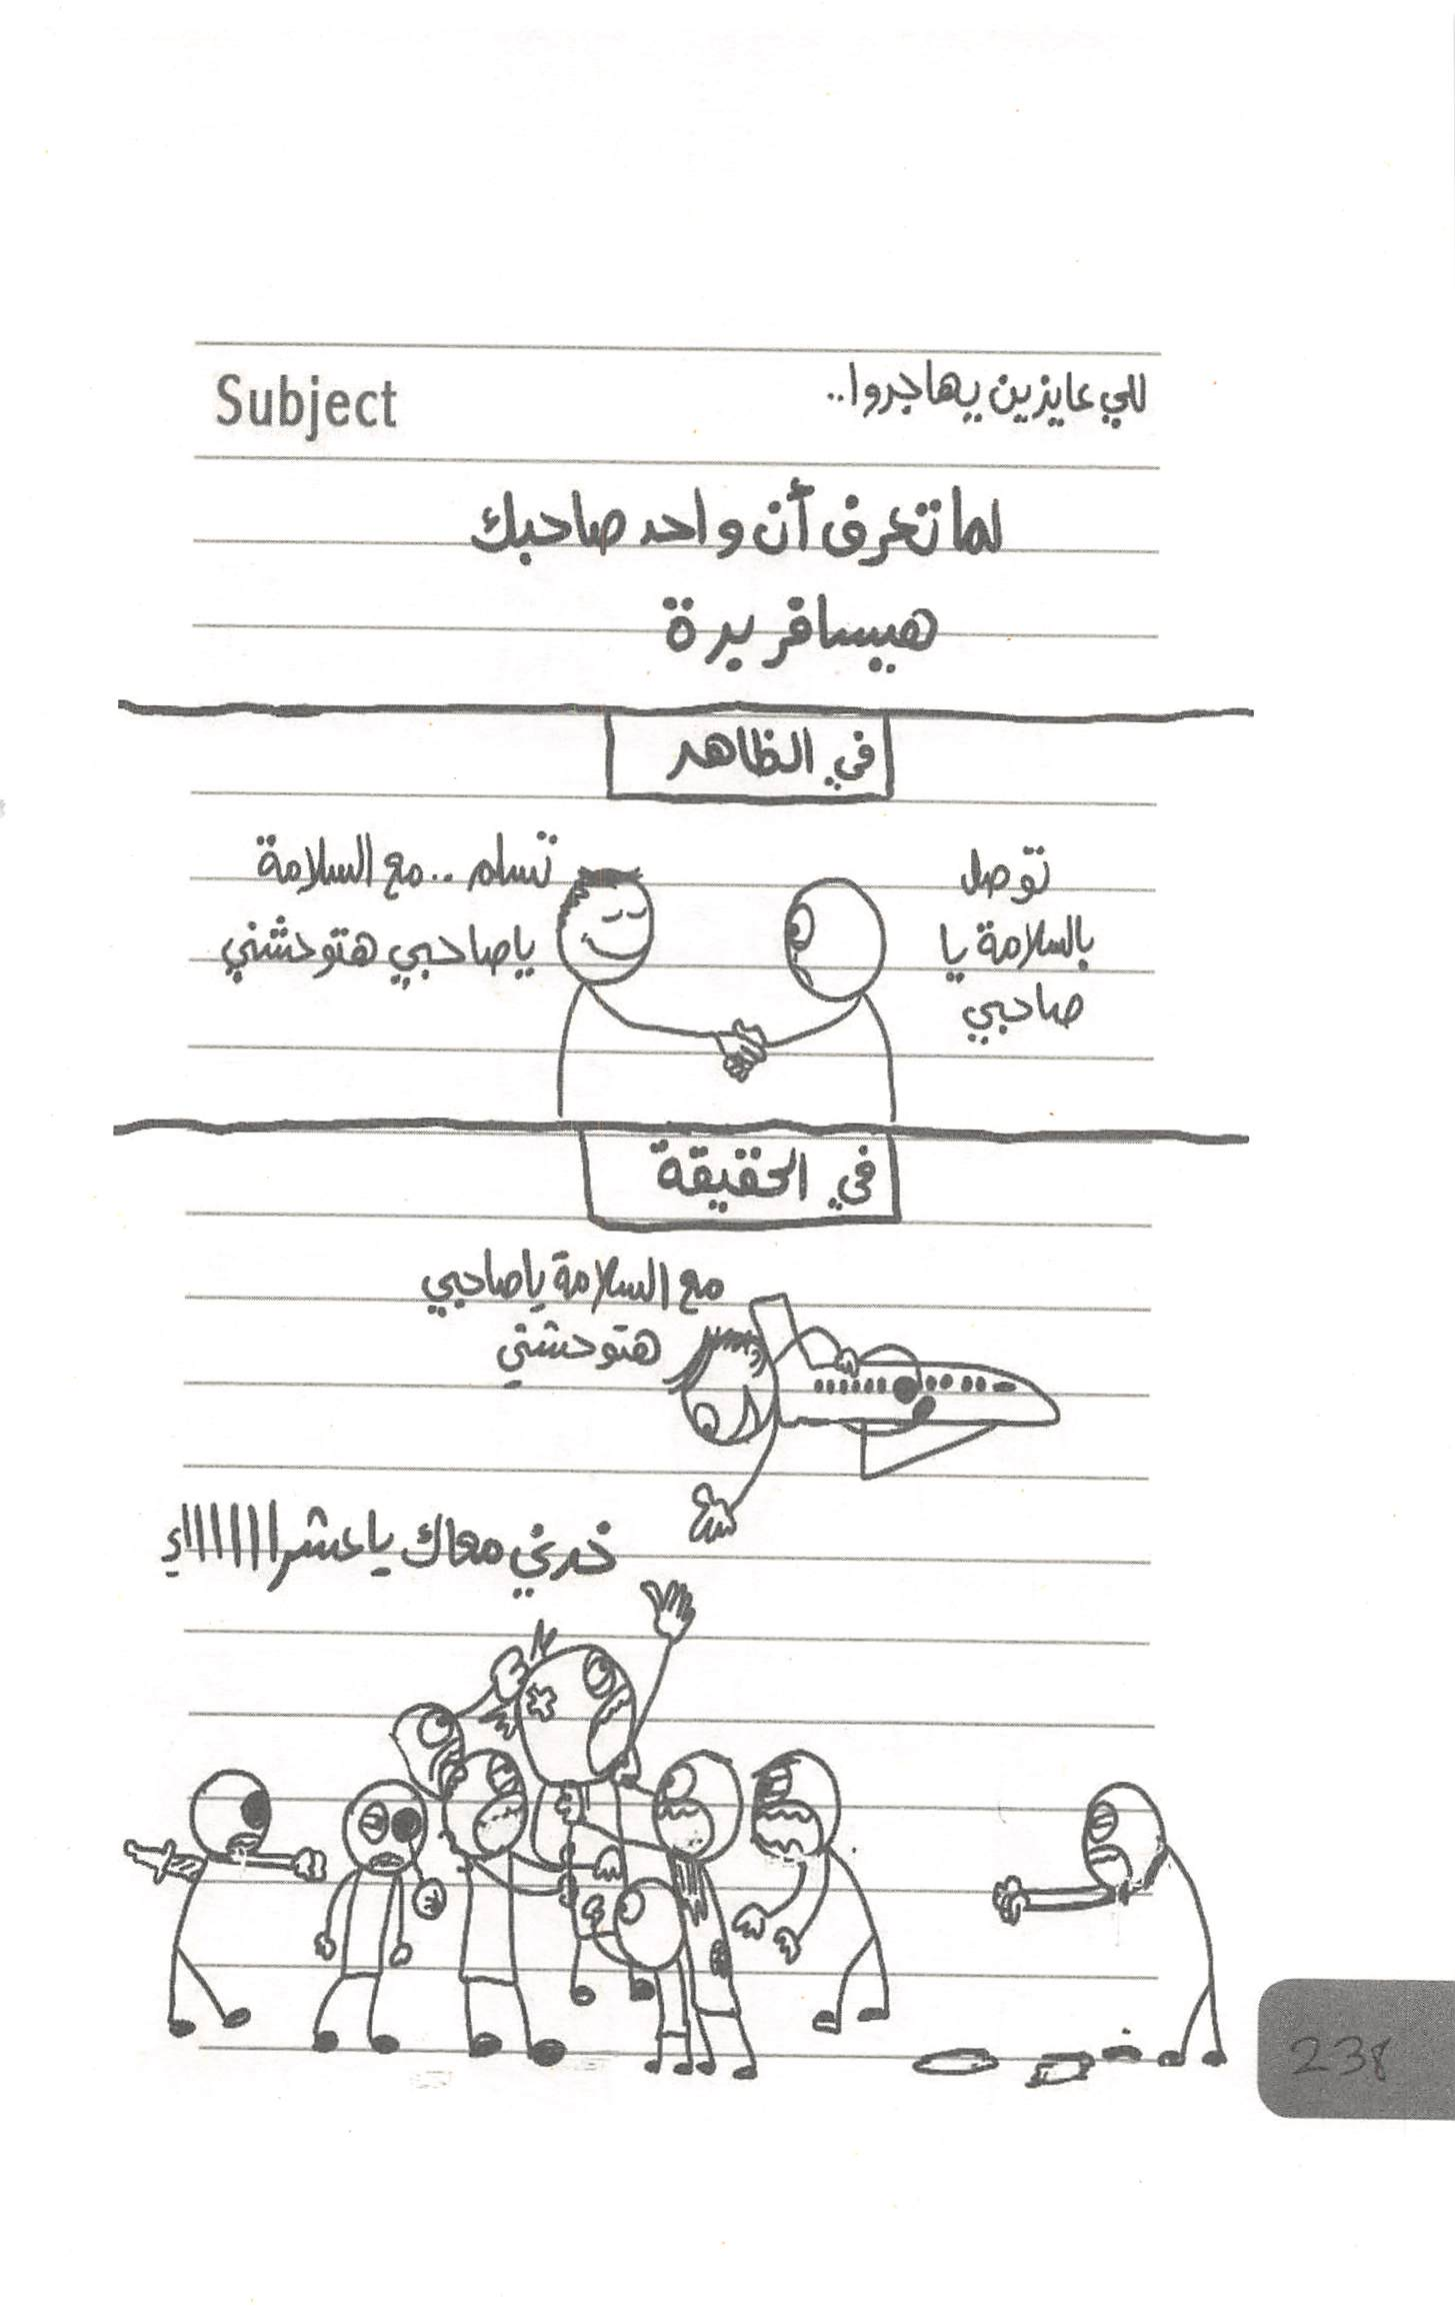 Subject
للي عايزين يهاجروا..
لما تعرف أن واحد صاحبك
هيسافر برة
في الظاهر
توصل
بالسلامة يا
صاحبي
تسلم .. مع السلامة
ياصاحبي هتوحشني
في الحقيقة
مع السلامة ياصاحبي
هتوحشني
خدني معاك ياعشرااااااااء
238